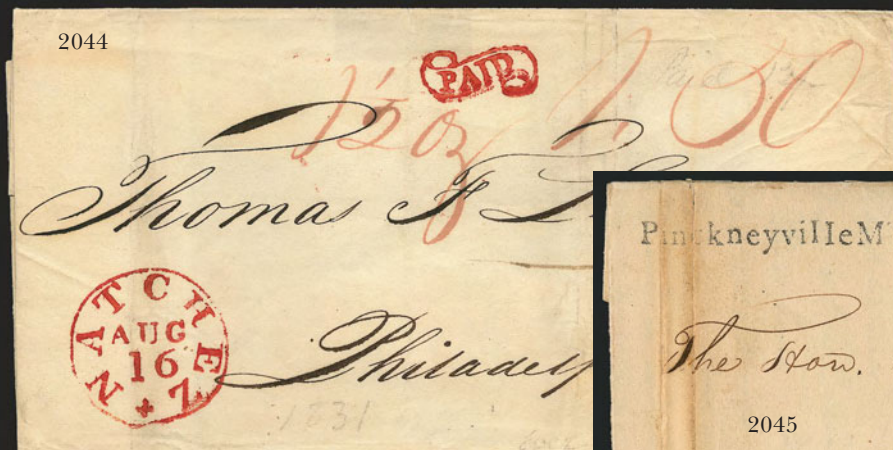 2044
PAID
1½ oz 1.50
Thomas F
NATCHEZ
AUG
16
Philadelp
1831
PinckneyvilleM
The Hon.
2045